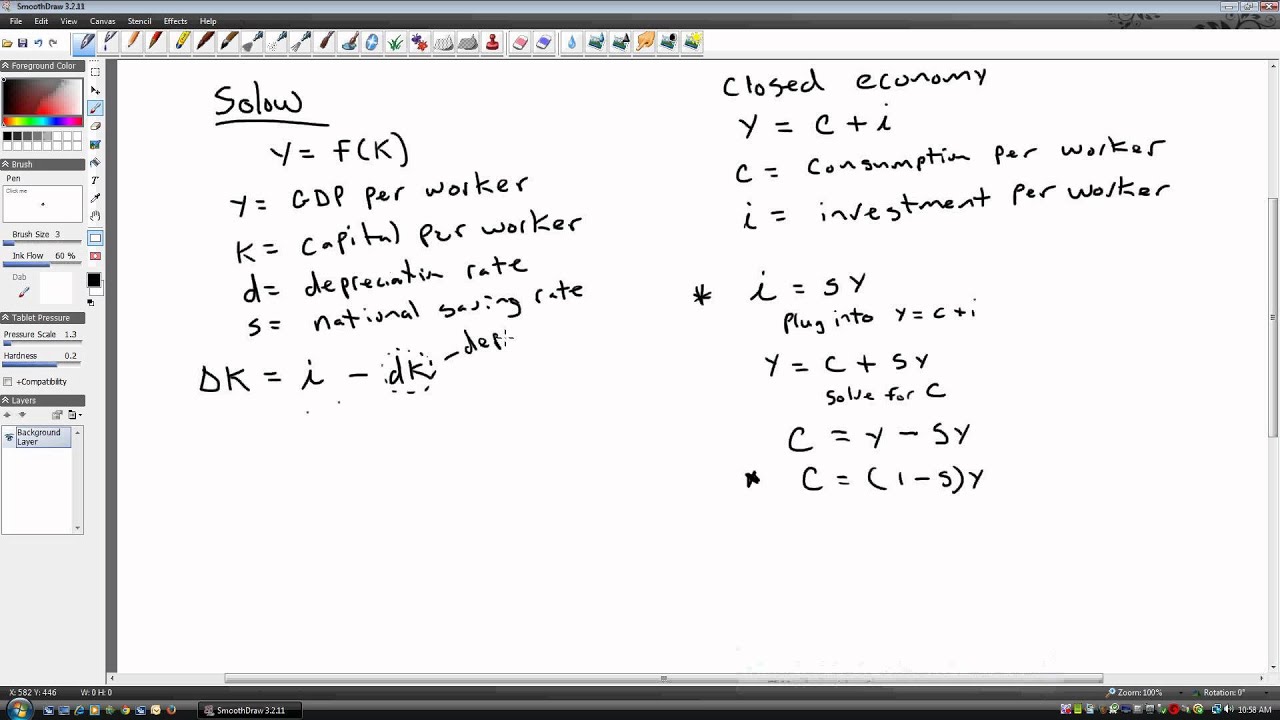 SmoothDraw 3.2.11
File Edit View Canvas Stencil Effects Help
Foreground Color
Brush
Pen
Click me
Brush Size 3
Ink Flow 60 %
Dab
Tablet Pressure
Pressure Scale 1.3
Hardness 0.2
+Compatibility
Layers
Background
Layer
Solow
Y = F(K)
Y = GDP per worker
K = Capital per worker
d = depreciation rate
S = national saving rate
ΔK = i - dK - depr
Closed economy
Y = C + i
C = Consumption per worker
i = investment per worker
* i = SY
plug into Y = C + i
Y = C + SY
Solve for C
C = Y - SY
* C = (1 - S)Y
X: 582 Y: 446 W: 0 H: 0
Zoom: 100% Rotation: 0°
SmoothDraw 3.2.11
10:58 AM